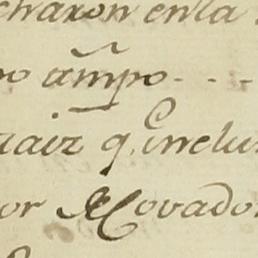 charon en la
po ampo - - -
raiz q. inclu
or Movado